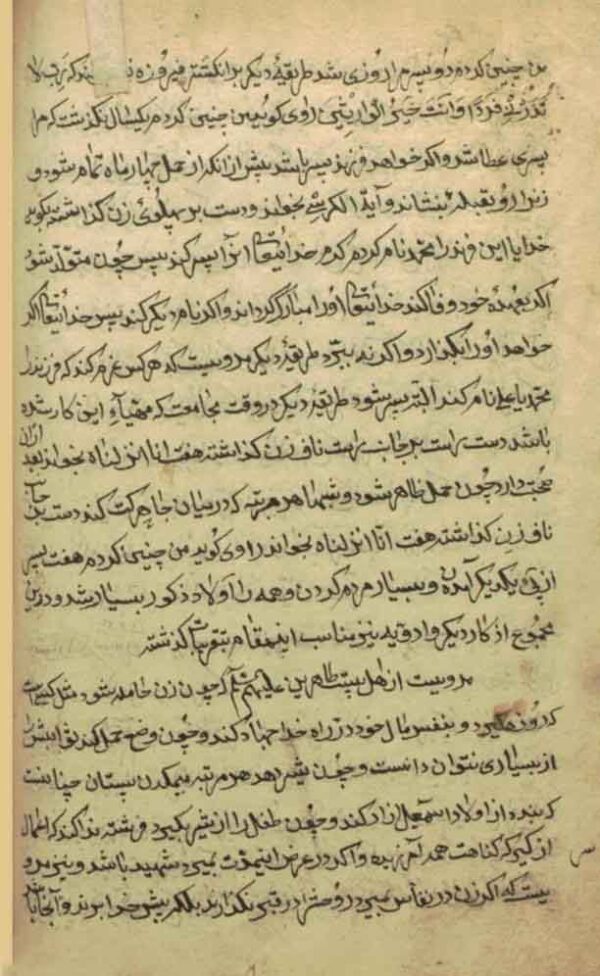 من چنین کرده دو پسرم روزی شد طریقهٔ دیکر بر انکشتر فیروزه کند که رب لا
تذرنی فردا وانت خیر الوارثین راوی کوید من چنین کردم یکسال نکذشت که مرا
پسری عطا شد و اکر خواهد فرزند پسر باشد پیش از انکه از حمل چهار ماه تمام شود و
زنرا رو بقبله بنشاند و آیة الکرسی بخواند و دست بر پهلوی زن کذاشته بکوید
خدایا این فرزند را محمد نام کردم خدایتعالی انرا پسر کند پس چون متولد شود
اکر بعهدهٔ خود وفا کند خدایتعالی او را مبارک کرداند و اکر نام دیکر کند پس خدایتعالی اکر
خواهد او را بکذارد و اکر نه ببرد طریقهٔ دیکر مرویست که هر کس عزم کند که فرزند را
محمد یا علی نام کند البته پسر شود طریقهٔ دیکر در وقت مجامعت که مهیآء این کار شده
باشد دست راست بر جانب راست ناف زن کذاشته هفت انا انزلناه بخواند بعد از ان
صحبت دارد چون حمل ظاهر شود و شبها هر مرتبه که در میان جا حرکت کند دست بر جانب
ناف زن کذاشته هفت انا انزلناه بخواند راوی کوید من چنین کردم هفت پسر
از پی یکدیکر آمدند و بسیار مردم کردن و همه را اولاد ذکور بسیار شد و در این
مجموع اذکار دیکر و ادعیه نیز مناسب اینمقام بتقریبات کذشته
مرویست از اهل بیت طاهرین علیهم السلم که چون زن حامله شود مثل کسی است
که روزه کیرد و بنفس و مال خود در راه خدا جهاد کند و چون وضع حمل کند ثوابش را
از بسیاری نتوان دانست و چون شیر دهد هر مرتبه بمکیدن پستان چنانست
که بنده از اولاد اسمعیل ازاد کند و چون طفل را از شیر بکیرد فرشته ندا کند که اعمال
از سر کیر که کناهت همه آمرزیده و اکر در عرض اینمدت بمیرد شهید باشد و نیز مرو
یست که اکر زن در نفاس بمیرد روحش را در قبر نکذارند بلکه پیش خدا برند و آنجا باشد